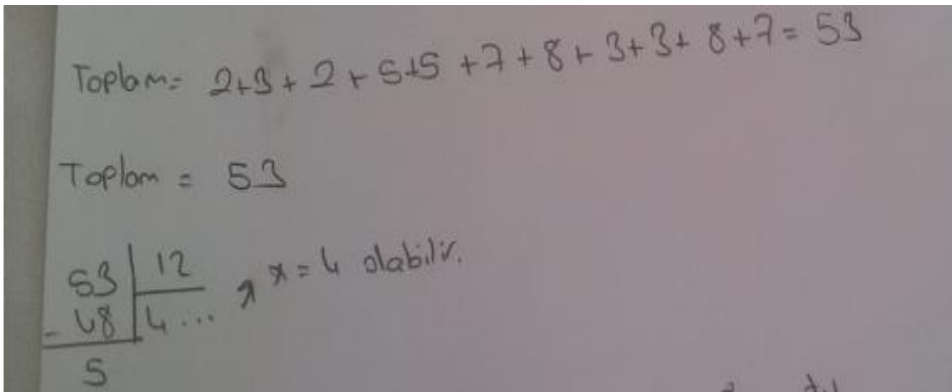 Toplam= 2+3+2+5+5+7+8+3+3+8+7= 53
Toplam = 53
53 | 12
- 48 | 4... x = 4 olabilir.
5